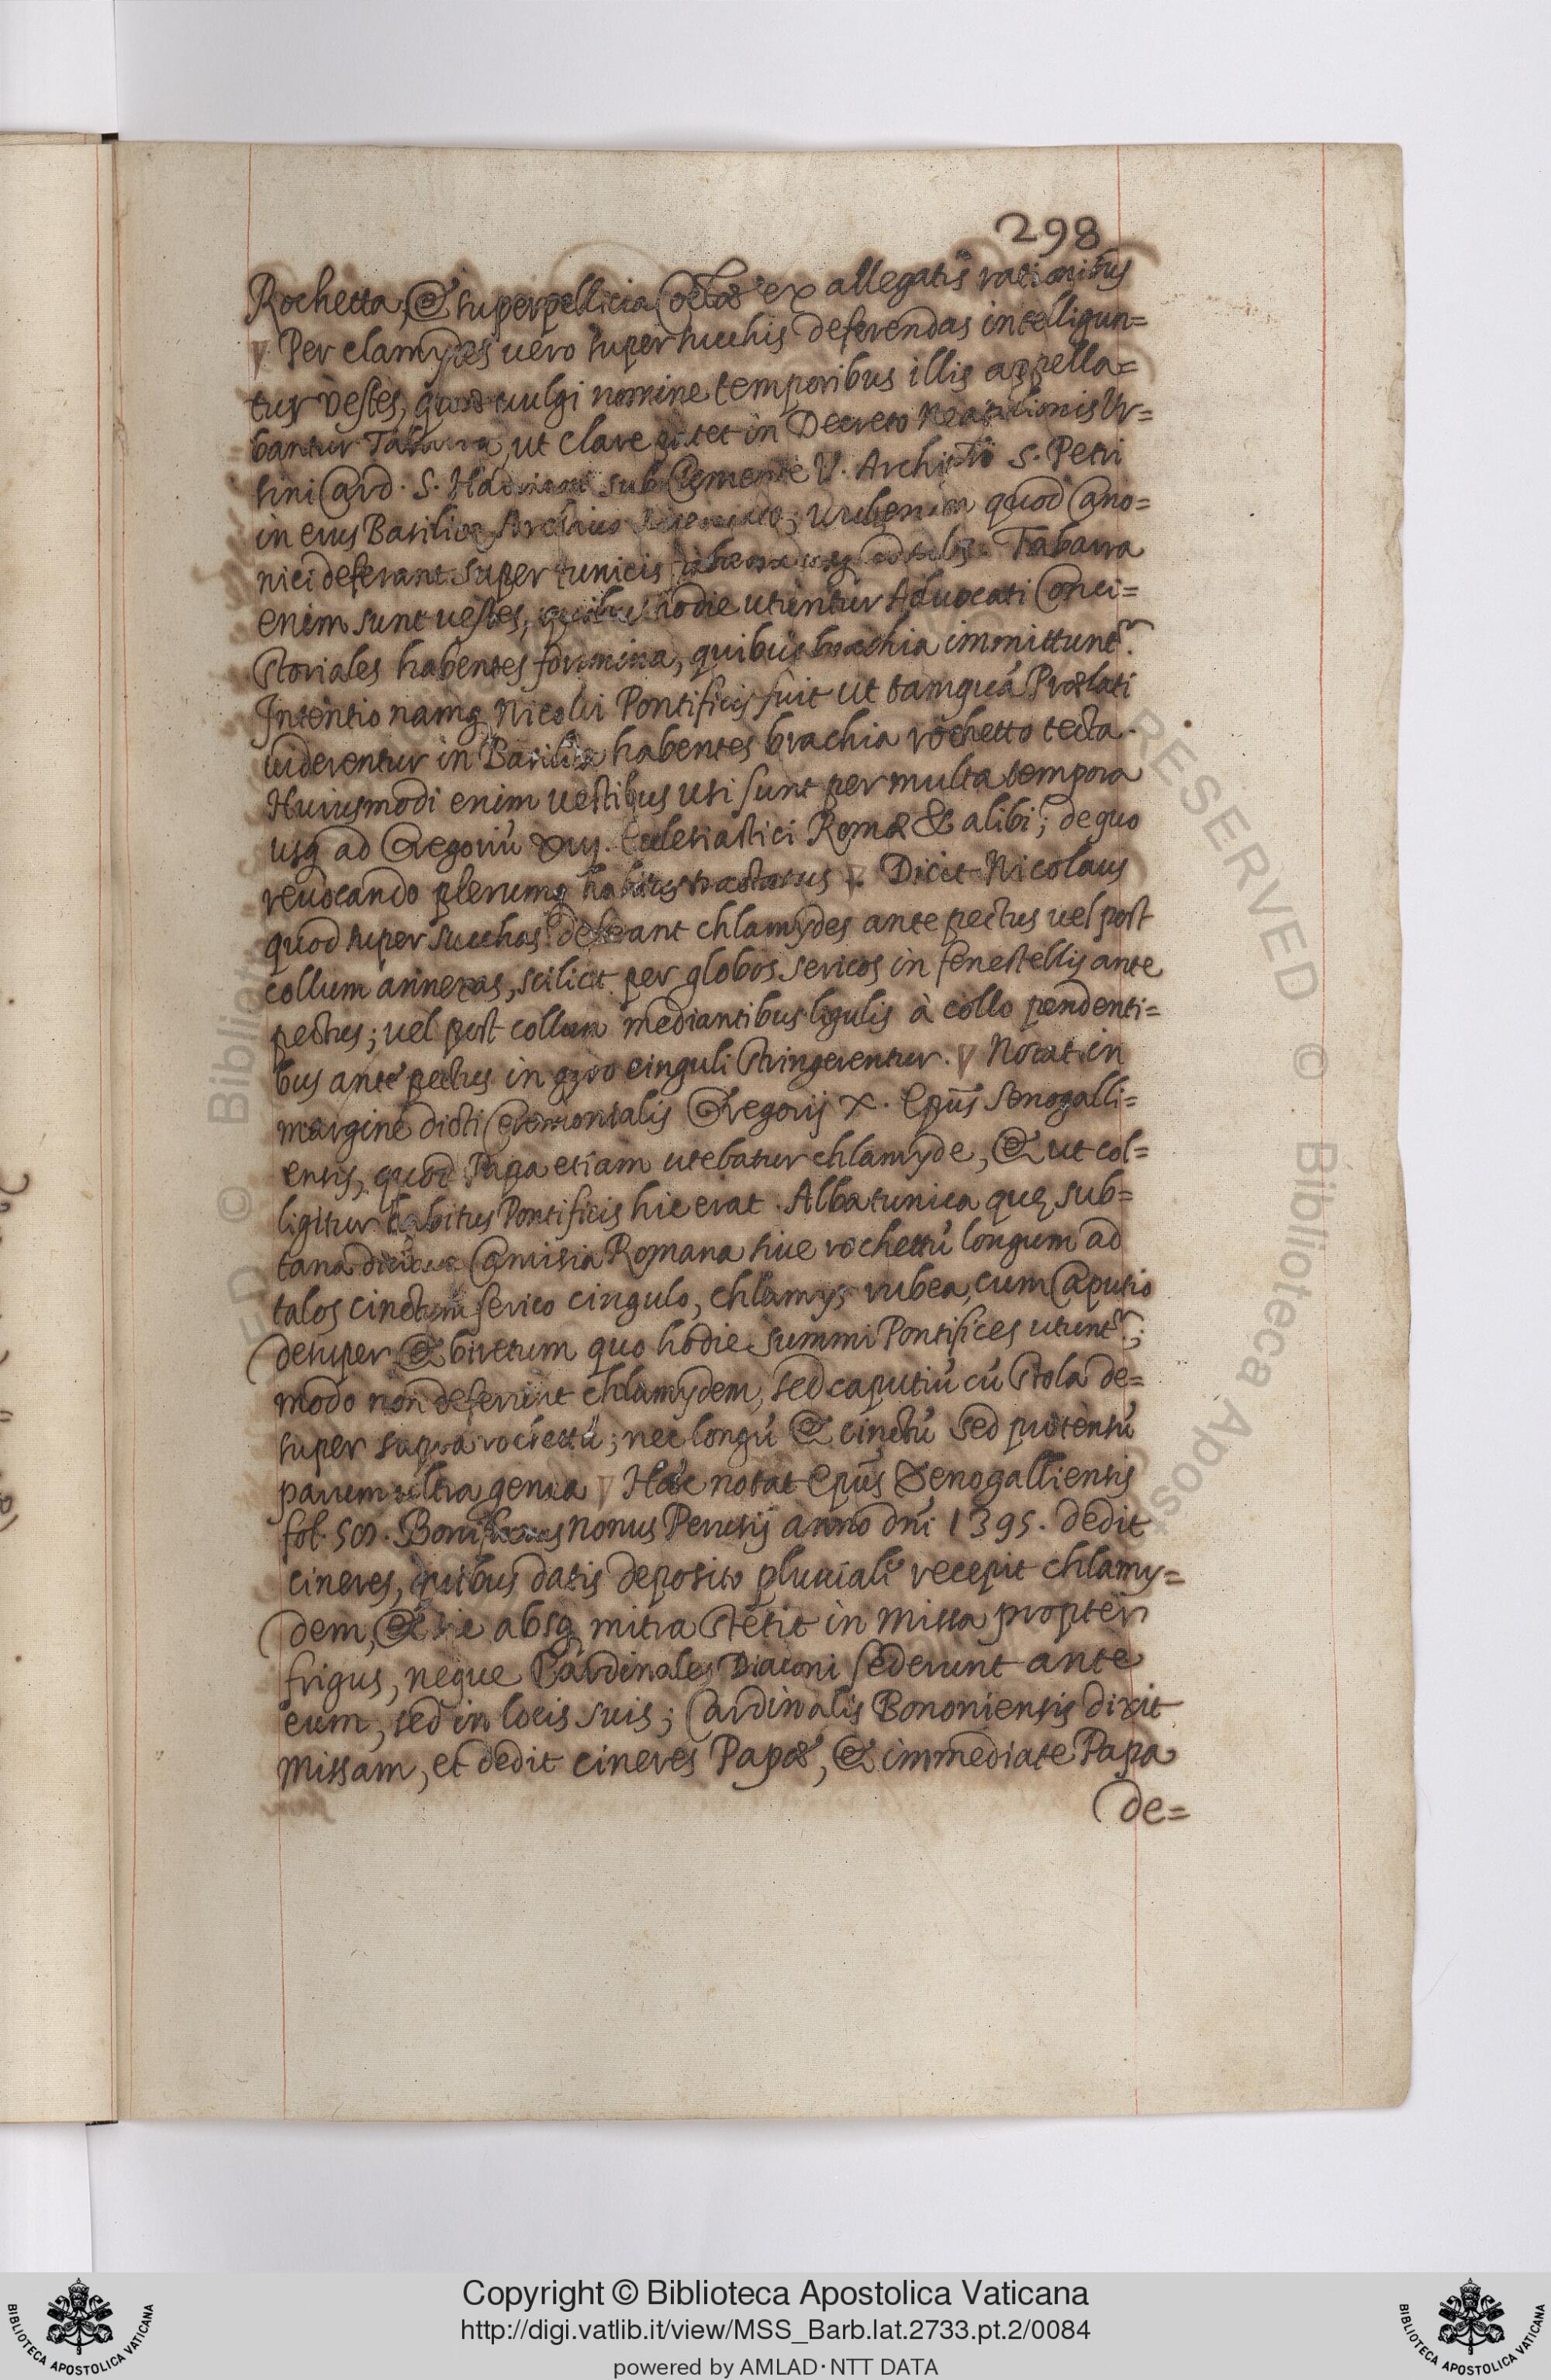 298
Rochetta, & superpellicia ex allegatis rationibus
Per clamydes uero super succhis deferendas intelligun=
tur vestes, quae uulgi nomine temporibus illis appella=
bantur Tabarra, ut clare patet in Decreto Neapolionis Vr=
sini Card. S. Hadriani sub Clemente V. Archipbr̃o S. Petri
in eius Basilicae Archiuo iubentem quod Cano=
nici deferant super tunicis Tabarra
enim sunt uestes, quibus hodie utuntur Aduocati Consi=
storiales habentes foramina, quibus brachia immittunt.
Intentio namq Nicolai Pontificis fuit ut tamquá Prælati
uiderentur in Basilica habentes brachia rochetto tecta.
Huiusmodi enim uestibus usi sunt per multa tempora
usq ad Gregoriú Ecclesiastici Romæ & alibi; de quo
reuocando plerumq habitus tractatus. Dicit Nicolaus
quod super succhas deferant chlamydes ante pectus uel post
collum annexas, scilicet per globos sericos in fenestellis ante
pectus; uel post collum mediantibus ligulis à collo pendenti=
bus ante pectus in gyro cinguli stringerentur. Notat in
margine dicti Ceremonialis Gregorij X. Epũs Senogalli=
ensis, quod Papa etiam utebatur chlamyde, & ut col=
ligitur habitus Pontificis hic erat. Alba tunica quę sub=
tana dicitur Camisia Romana siue rochettú longum ad
talos cinctum serico cingulo, chlamys rubea, cum Caputio
desuper & biretum quo hodie summi Pontifices utunt;
modo non deferunt chlamydem, sed caputiú cú stola de=
super supra rochettú; nec longú & cinctú sed protensú
parum ultra genua Hæc notat Epũs Senogalliensis
fol. 50. Bonifacius nonus Perusij anno dñi 1395. dedit
cineres, quibus datis deposito pluuiali recepit chlamy=
dem, & sic absq mitra stetit in missa propter
frigus, neque Cardinales Diaconi sederunt ante
eum, sed in locis suis; Cardinalis Bononiensis dixit
missam, et dedit cineres Papæ, & immediate Papa
de=
© Biblioteca
RESERVED © Biblioteca Apos
Copyright © Biblioteca Apostolica Vaticana
http://digi.vatlib.it/view/MSS_Barb.lat.2733.pt.2/0084
powered by AMLAD·NTT DATA
BIBLIOTECA APOSTOLICA VATICANA
BIBLIOTECA APOSTOLICA VATICANA